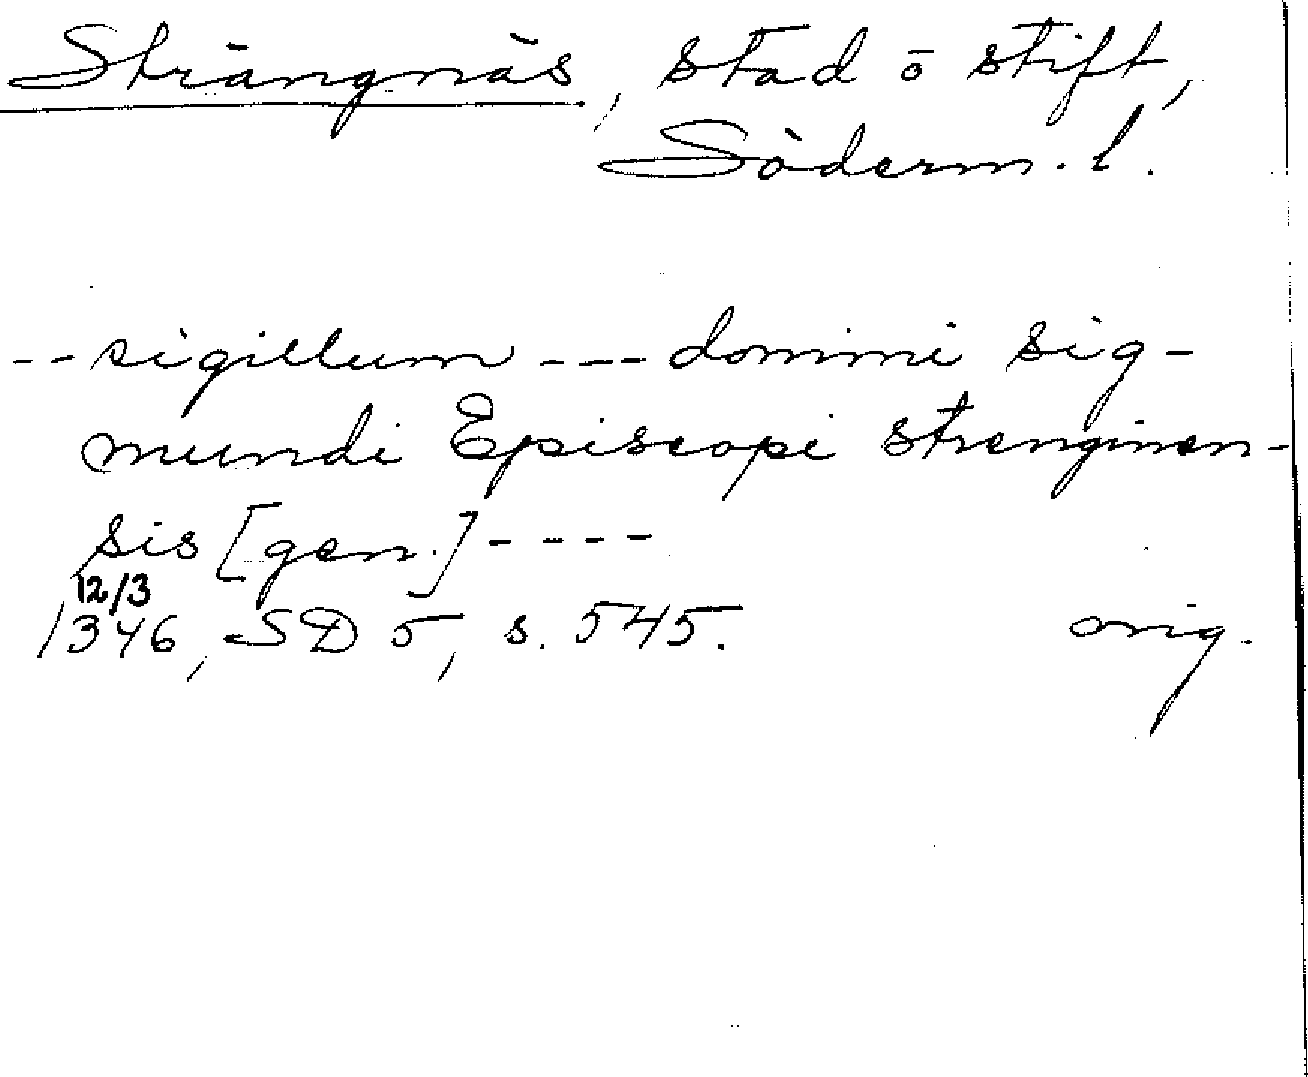 Strängnäs, stad o stift,
Söderm. l.
-- sigillum --- domini Sig-
mundi Episcopi strenginen-
sis [gen.] ----
12/3
1346, SD 5, s. 545. orig.